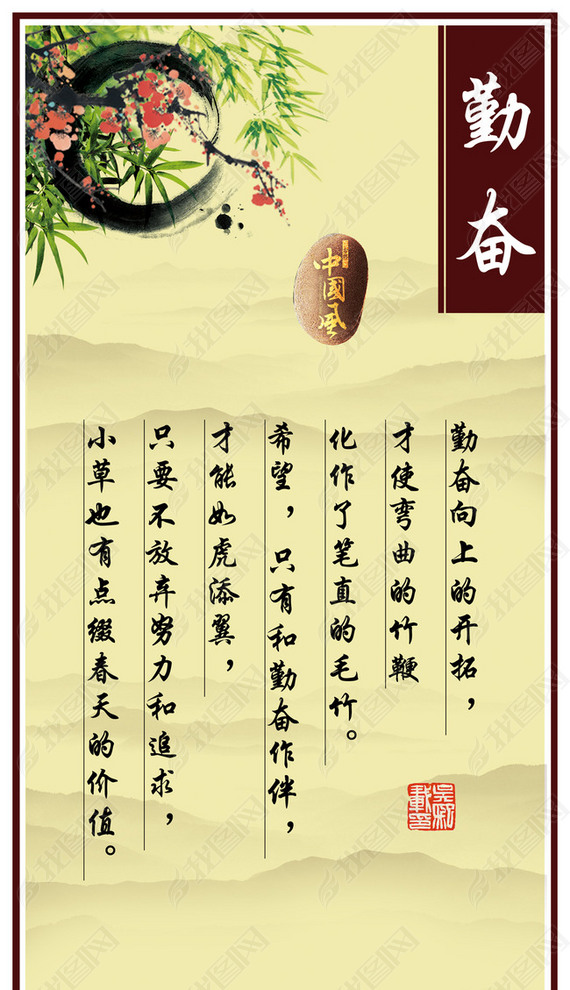 勤奋
中國風
勤奋向上的开拓，
才使弯曲的竹鞭
化作了笔直的毛竹。
希望，只有和勤奋作伴，
才能如虎添翼，
只要不放弃努力和追求，
小草也有点缀春天的价值。